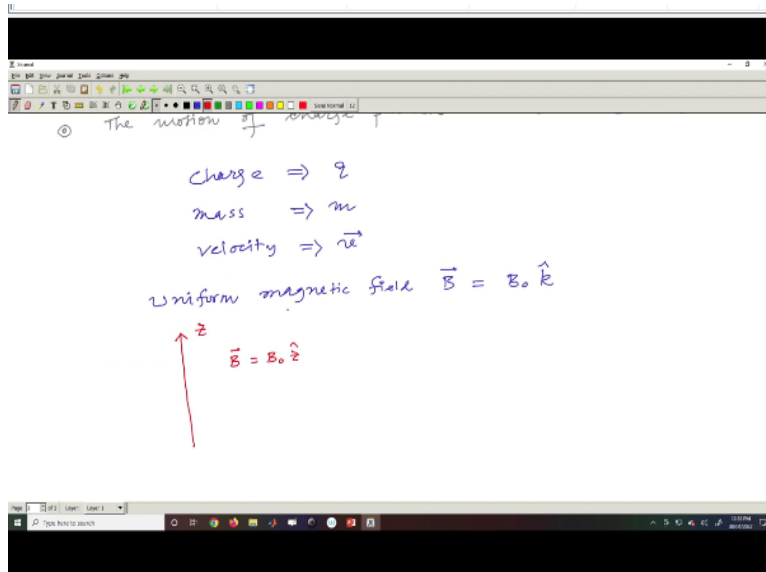 Xournal
File Edit View Journal Tools Options Help
Sans Normal 12
⊙ The motion of charge
charge => q
mass => m
velocity => v⃗
Uniform magnetic field B⃗ = B₀ k̂
z
B⃗ = B₀ ẑ
Page 1 of 2 Layer: Layer 1
Type here to search